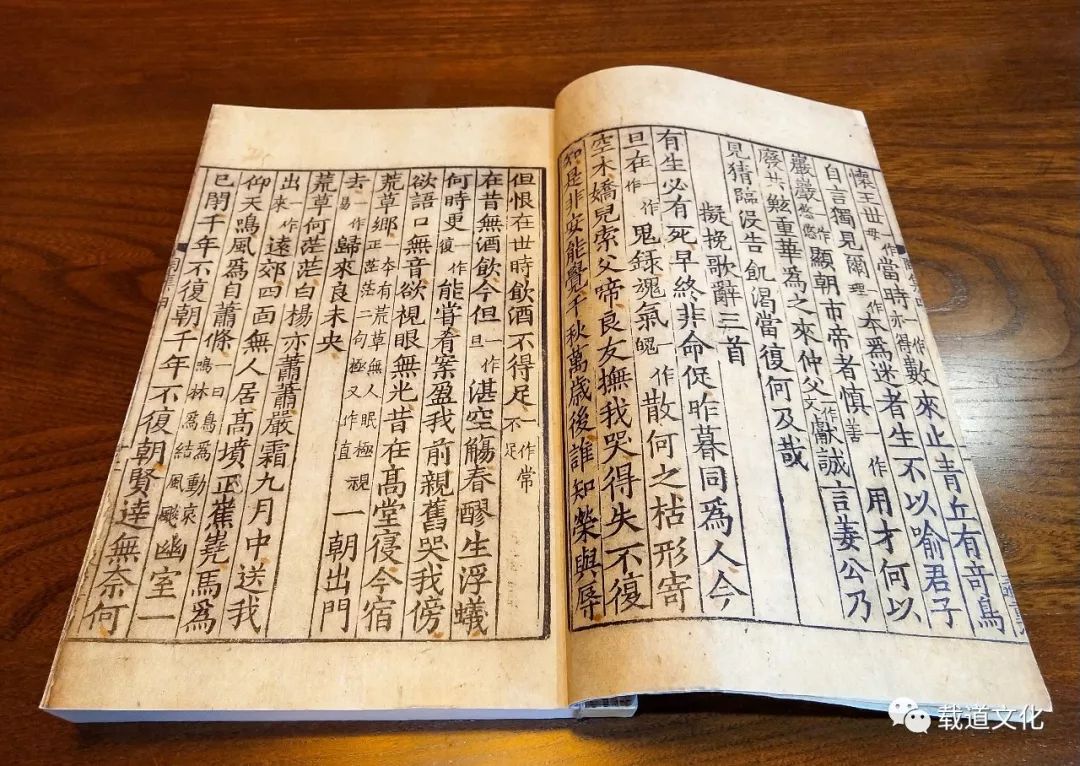 懷王世母一作當時亦得一作數來止青丘有奇鳥
自言獨見爾一作理本爲迷者生不以喻君子
巖巖一作悠悠顯朝市帝者慎一作善用才何以
廢共鮌重華爲之來仲父一作文獻誠言姜公乃
見猜臨没告飢渴當復何及哉
擬挽歌辭三首
有生必有死早終非命促昨暮同爲人今
旦在一作作鬼錄魂氣一作魄散何之枯形寄
空木嬌兒索父啼良友撫我哭得失不復
知是非安能覺千秋萬歲後誰知榮與辱
但恨在世時飲酒不得足一作常不足
在昔無酒飲今但一作旦湛空觴春醪生浮蟻
何時更一作復能嘗肴案盈我前親舊哭我傍
欲語口無音欲視眼無光昔在高堂寢今宿
荒草鄉一本有荒草無人眠極視正茫茫二句極又作直一朝出門
去一作易歸來良未央
荒草何茫茫白楊亦蕭蕭嚴霜九月中送我
出一作來遠郊四面無人居高墳正嶣嶢馬爲
仰天鳴風爲自蕭條一曰鳥爲動哀鳴林爲結風飈幽室一
已閉千年不復朝千年不復朝賢達無奈何
载道文化